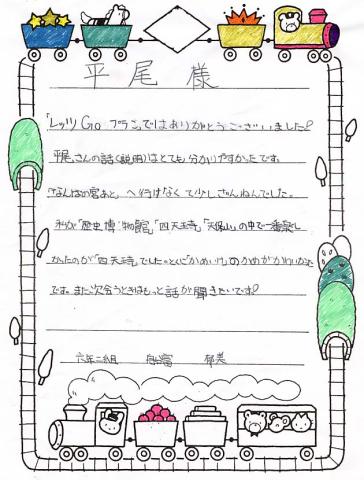 平尾様
「レッツGoプラン」ではありがとうございました。
平尾さんの話(説明)はとても分かりやすかったです。
「なんばの宮あと」へ行けなくて少しざんねんでした。
私が「歴史博物館」「四天王寺」「天保山」の中で一番楽し
かったのが「四天王寺」でした。とくに「かめいけ」のかめがかわいかった
です。また次会うときはもっと話が聞きたいです。
六年二組 郁美